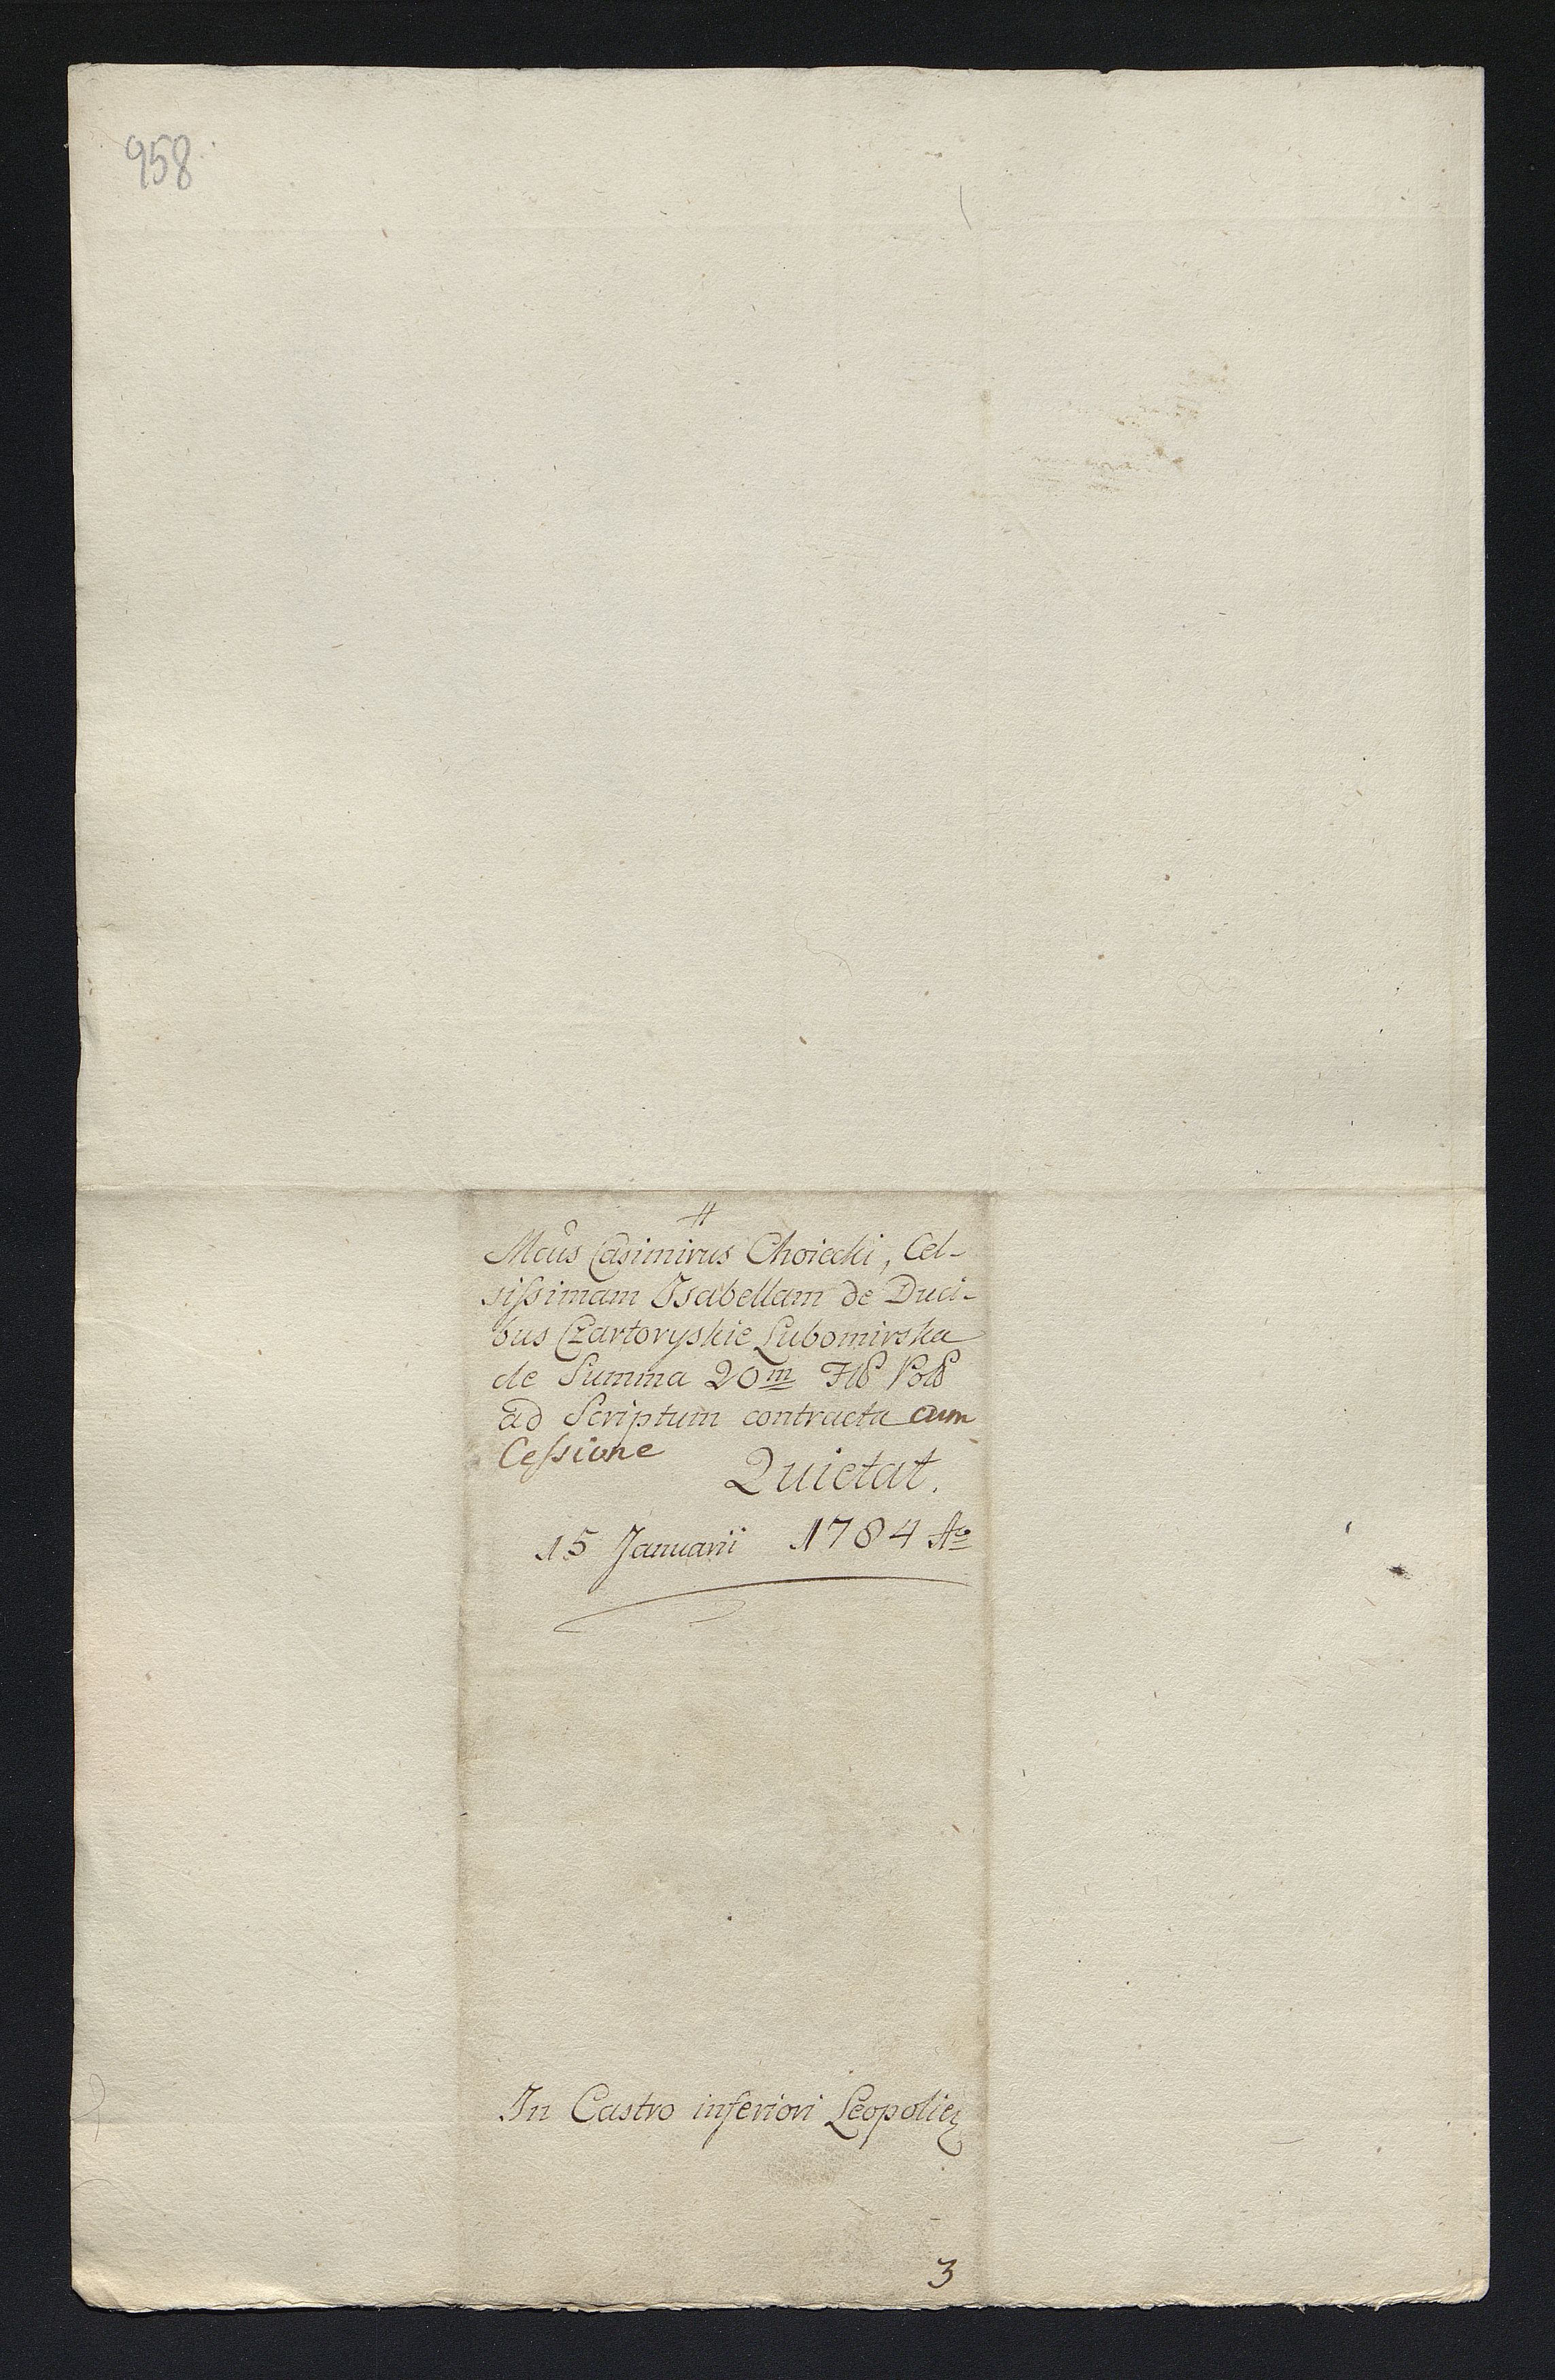 958
#
Mcus Casimirus Choiecki, Cel-
sissimam Isabellam de Duci-
bus Czartoryskie Lubomirska
de Summa 20m Flo Polo
ad Scriptum contracta cum
Cessione
Quietat.
15 Januarii 1784 Ao
In Castro inferiori Leopolien
3